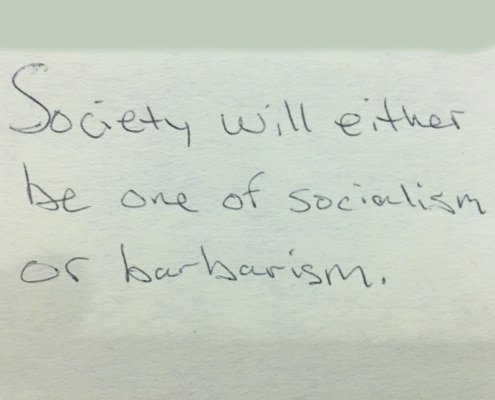 Society will either
be one of socialism
or barbarism.